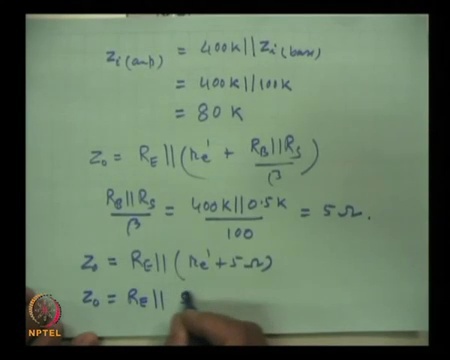 Zi(amp) = 400K || Zi(base)
= 400K || 100K
= 80 K
Zo = RE || (re' + RB||RS / β)
RB||RS / β = 400K || 0.5K / 100 = 5Ω.
Zo = RE || (re' + 5Ω)
Zo = RE ||
NPTEL